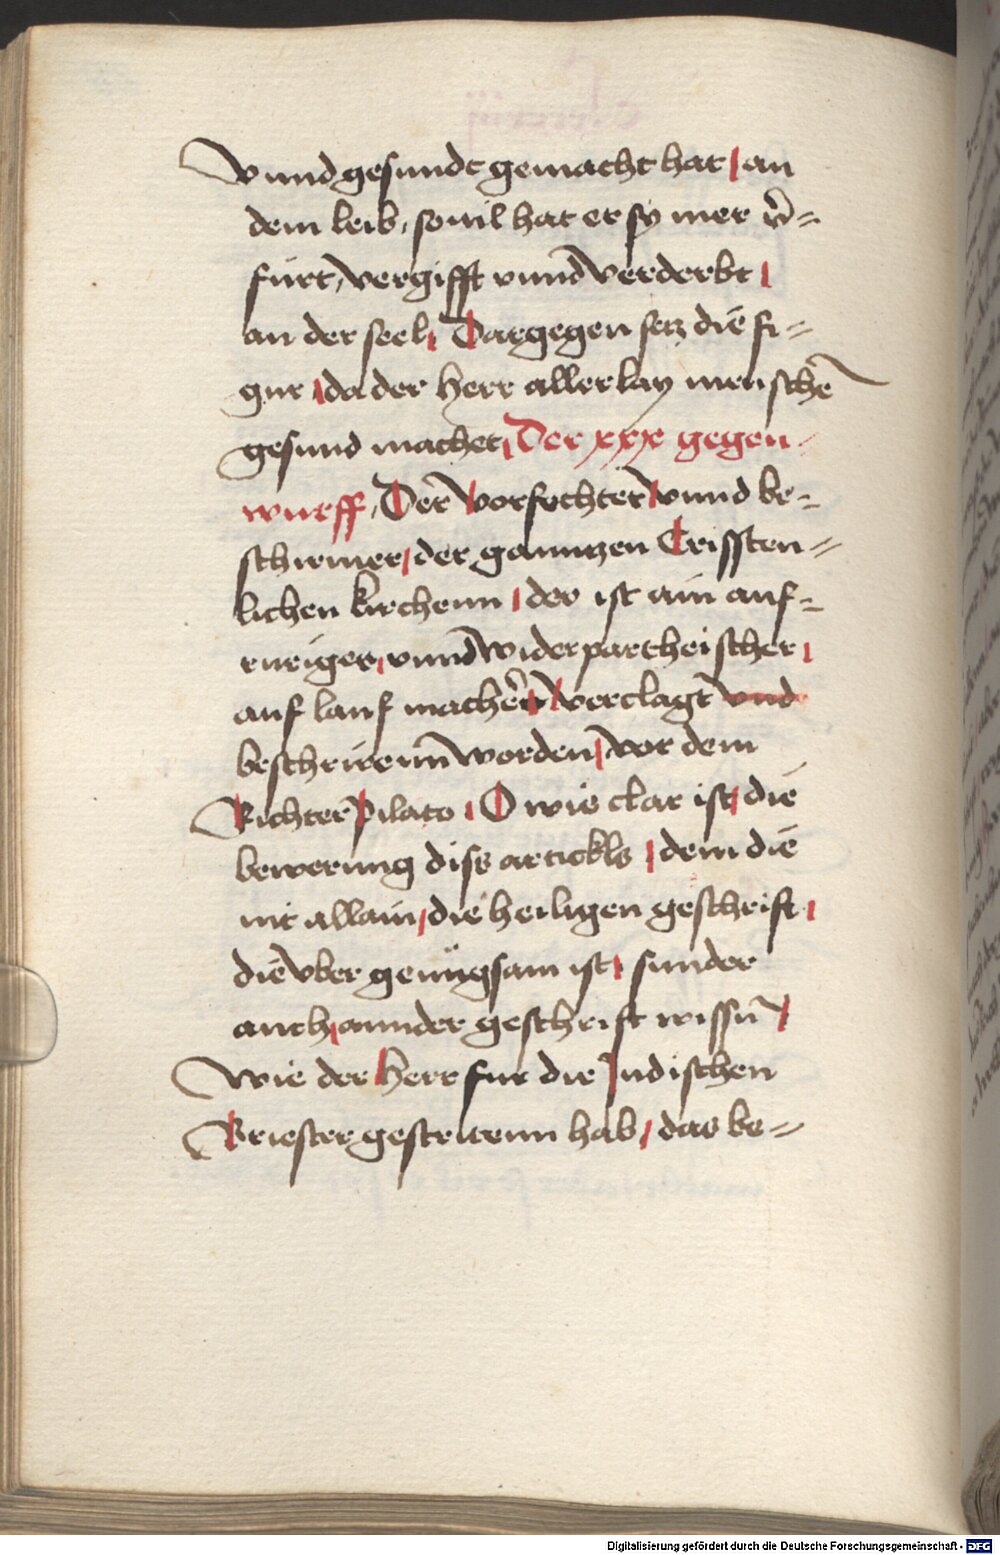 Vnnd gesundt gemacht hat / an
dem leib, souil hat er sy mer v̄=
fürt, vergifft vnnd verderbt /
an der seel / Dargegen setz die fi=
gur / da der herr allerlay mensche͂
gesund machet / Der xxx gegen
wurff, Der vorfechter vnnd be=
schirmer / der ganntzen Crissten=
lichen kirchenn / der ist ain auf=
ruriger / vnnd widerpartheischer /
auf lauf macher / verclagt vnd
beschrirenn worden / vor dem
Richter Pilato / O wie clar ist / die
bewerung diss artickls / dem die
nit allain / die heiligen geschrift /
die vber genugsam ist / sunder
auch / annder geschrift wissn̄ /
Wie der Herr fur die Judischen
Briester gestritenn hab / das be=
Digitalisierung gefördert durch die Deutsche Forschungsgemeinschaft - DFG